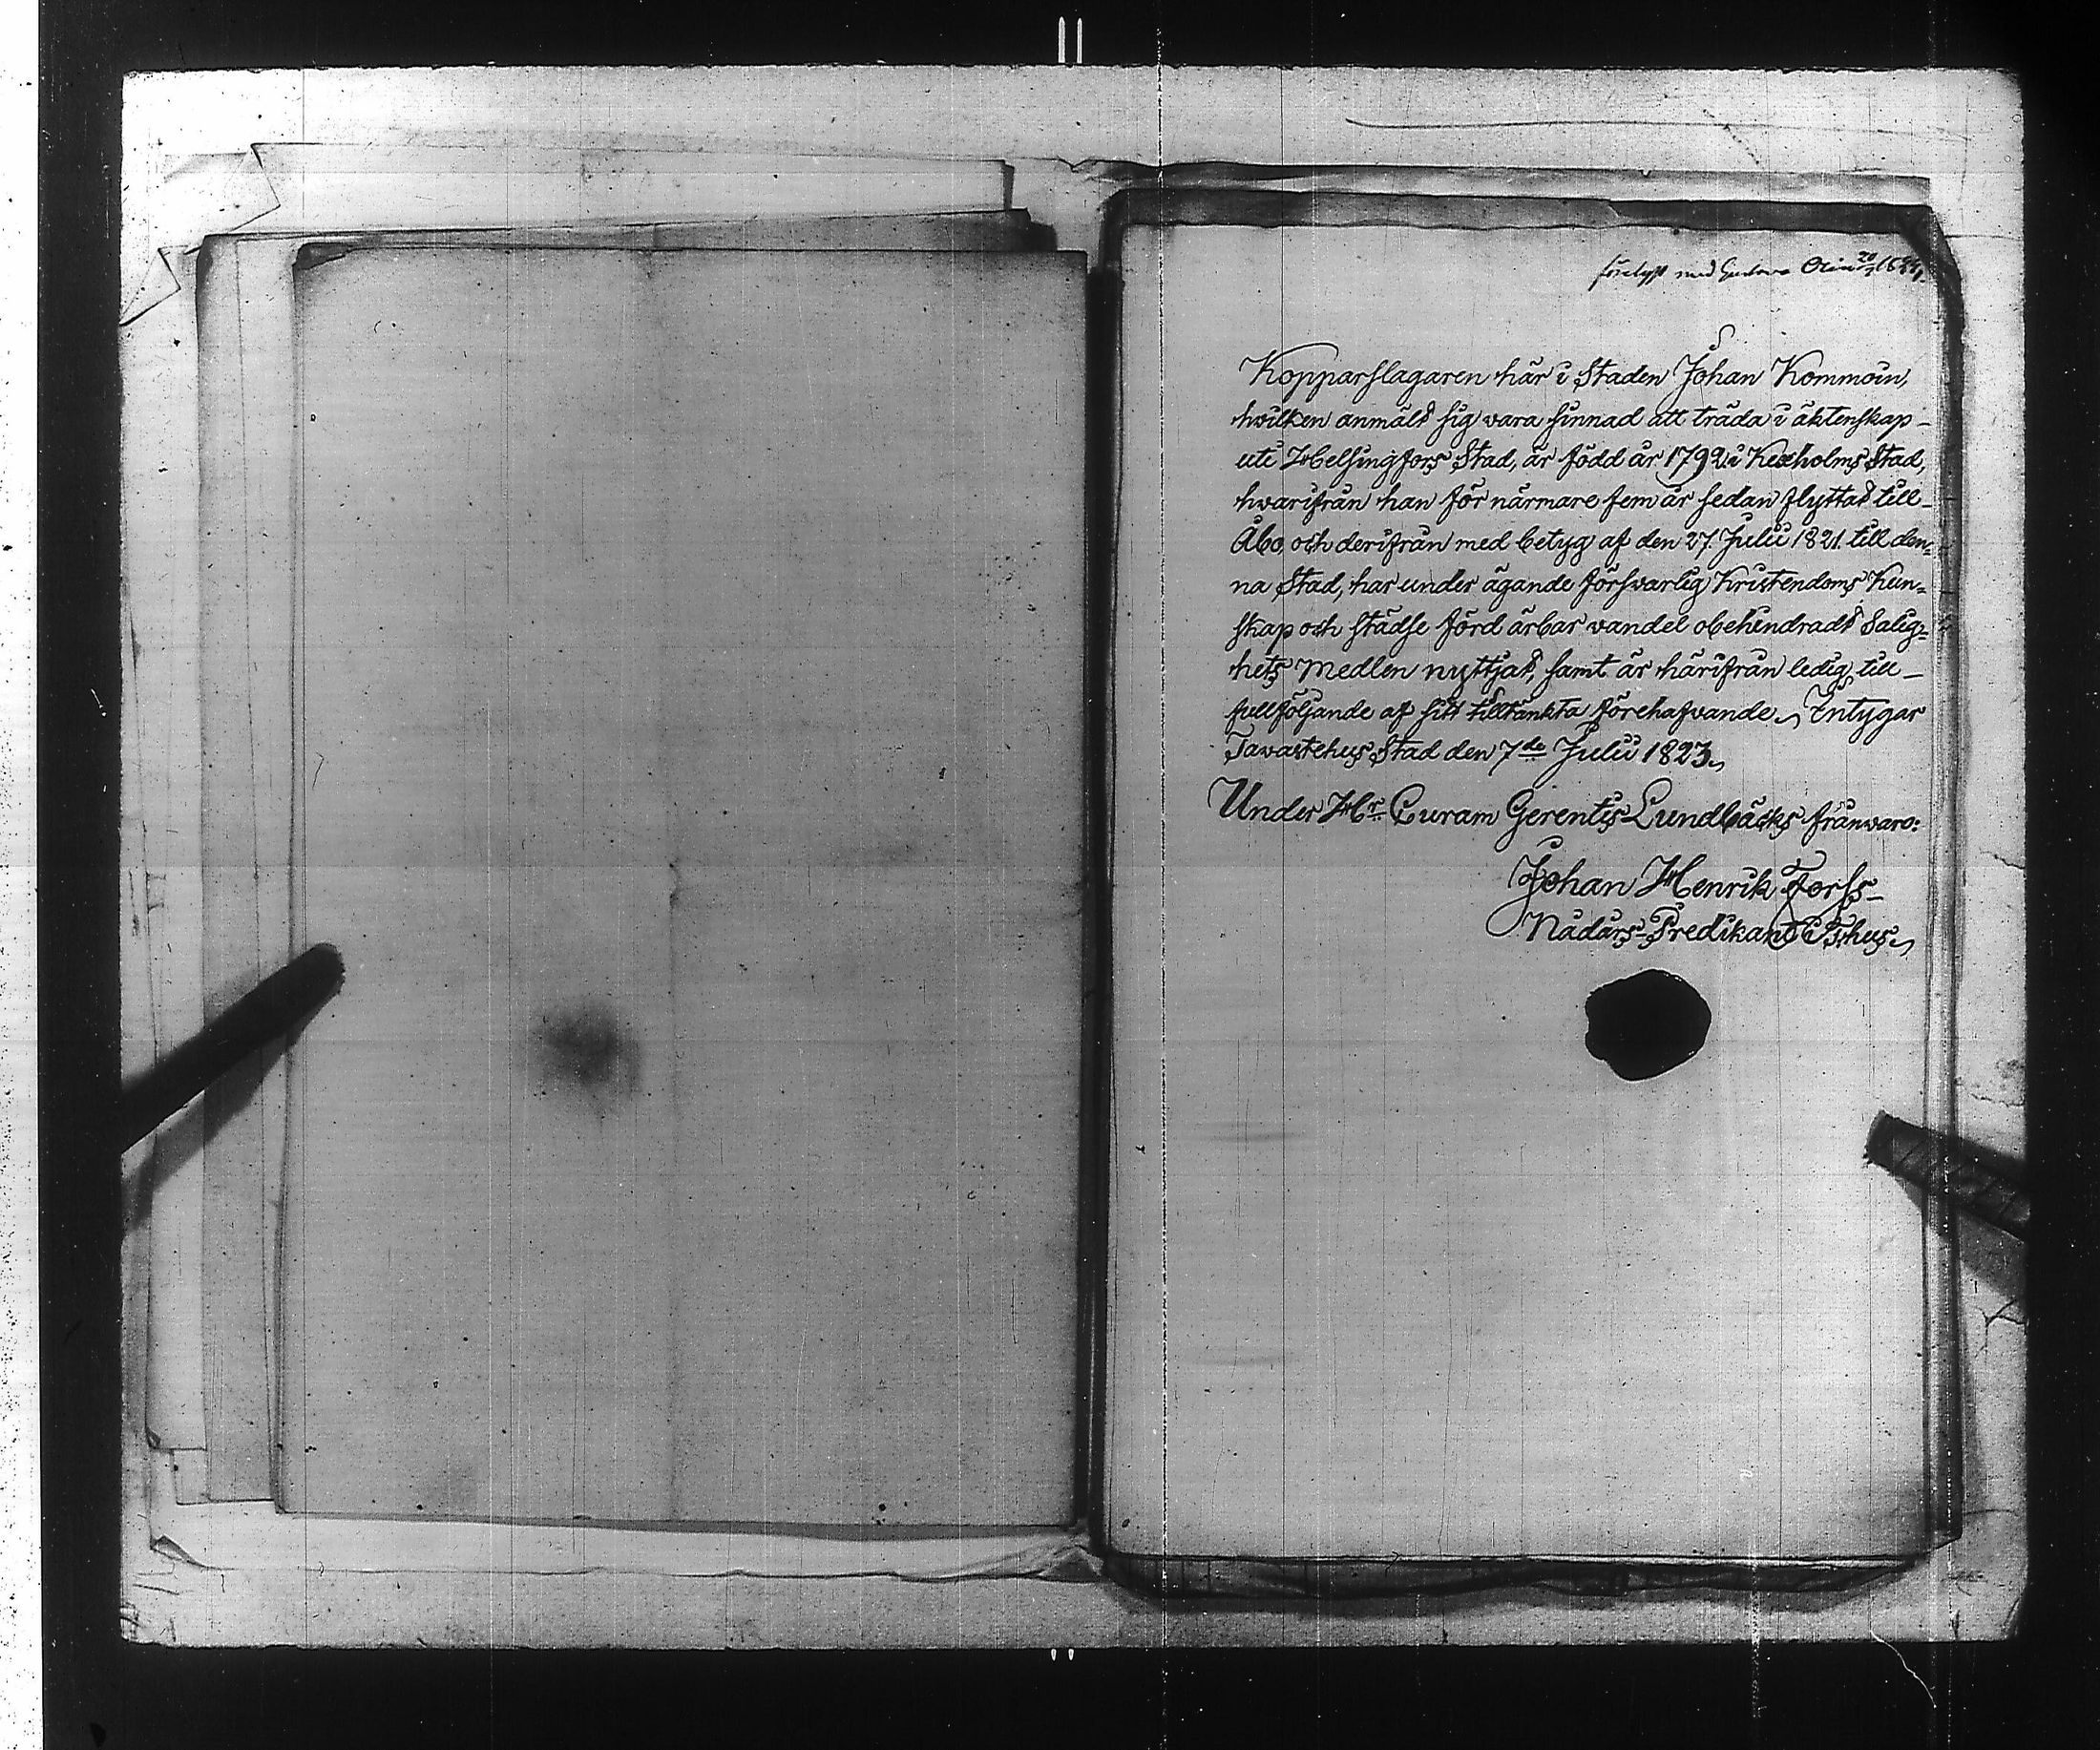 förelyst med Gustava
Kopparslagaren här i Staden Johan Kommoin,
hvilken anmält sig vara sinnad att träda i äktenskap
uti Helsingfors Stad, är född år 1792 i Kexholms Stad,
hvarifrån han för närmare fem år sedan flyttat till
Åbo, och derifrån med betyg af den 27. Julii 1821. till den=
na Stad, har under ägande försvarlig Kristendoms Kun=
skap och städse förd ärbar vandel obehindradt Salig=
hets Medlen nyttjat, samt är härifrån ledig till
fullföljande af sitt tilltänkta förehafvande, Intygar
Tavastehus Stad den 7de Julii 1823,
Under Hr Curam Gerentis Lundbäcks frånvaro:
Johan Henrik Forss
Nådårs-Predikant i T:hus,